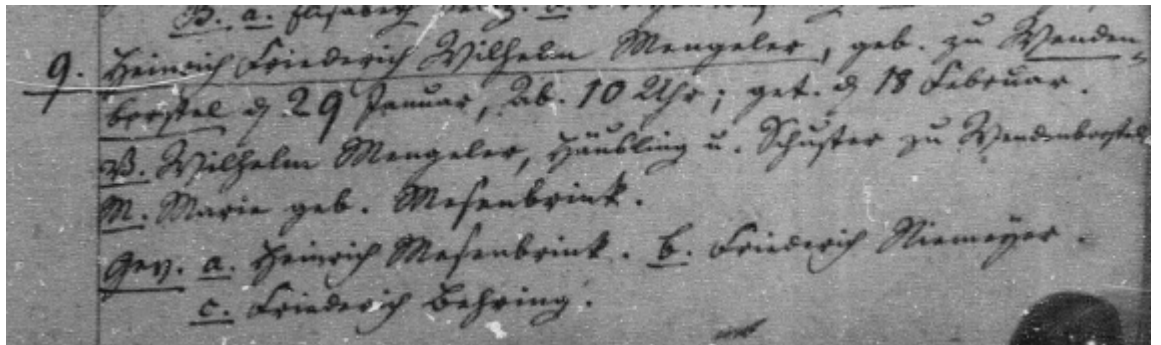 B. a. Elisabeth
9. Heinrich Friederich Wilhelm Mengeler, geb. zu Wenden-
borstel d 29 Januar, Ab. 10 Uhr; get. d 18 Februar.
V. Wilhelm Mengeler, Häusling u. Schuster zu Wendenborstel
M. Marie geb. Mesenbrink.
Gev. a. Heinrich Mesenbrink. b. Friederich Niemeyer.
c. Friederich Behring.